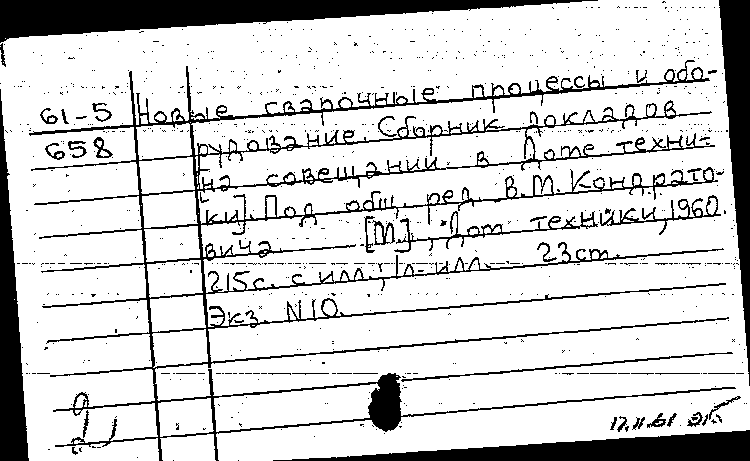 61-5 Новые сварочные процессы и обо-
658 рудование. Сборник докладов
[на совещании в Доме техни-
ки]. Под общ. ред. В.М. Кондрато-
вича. [М.], Дом техники, 1960.
215с. с илл.; 1л. илл. 23см.
Экз. N10.
2
17.II.61